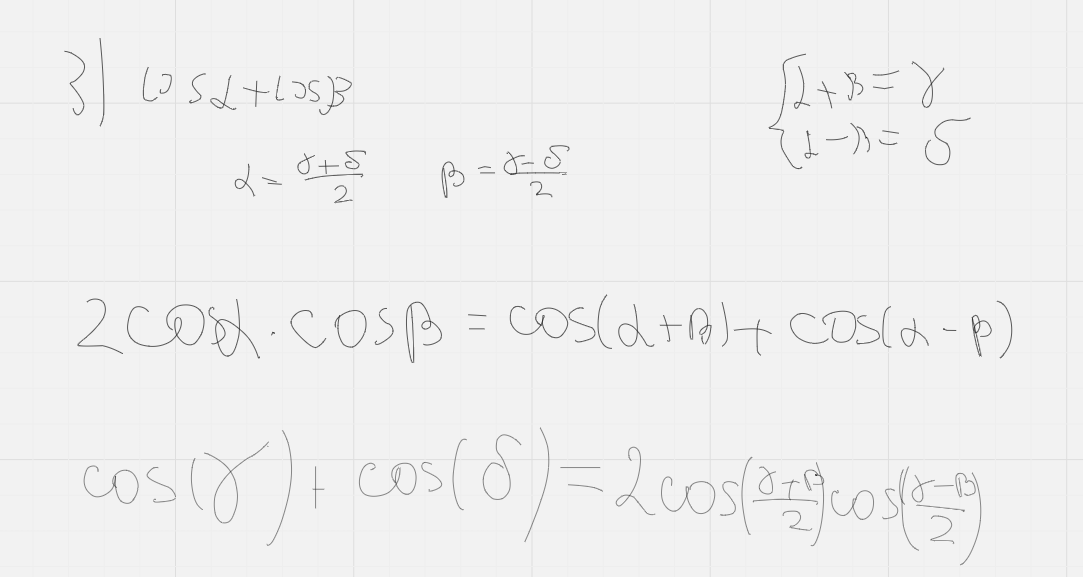 3) cosα+cosβ
{α+β=γ
α-β=δ
α=(γ+δ)/2 β=(γ-δ)/2
2cosα·cosβ=cos(α+β)+cos(α-β)
cos(γ)+cos(δ)=2cos((γ+β)/2)cos((γ-β)/2)